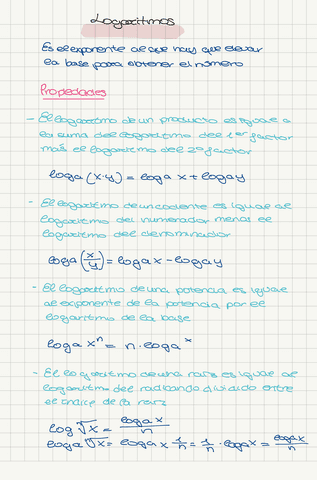 Logaritmos
Es el exponente al que hay que elevar
la base para obtener el número
Propiedades
- El logaritmo de un producto es igual a
la suma del logaritmo del 1er factor
más el logaritmo del 2º factor
loga (x·y) = loga x + loga y
- El logaritmo de un cociente es igual al
logaritmo del numerador menos el
logaritmo del denominador
loga (x/y) = loga x - loga y
- El logaritmo de una potencia es igual
al exponente de la potencia por el
logaritmo de la base
loga xⁿ = n · loga x
- El logaritmo de una raíz es igual al
logaritmo del radicando dividido entre
el índice de la raíz
log ⁿ√x = loga x / n
loga ⁿ√x = loga x 1/n = 1/n · loga x = loga x / n